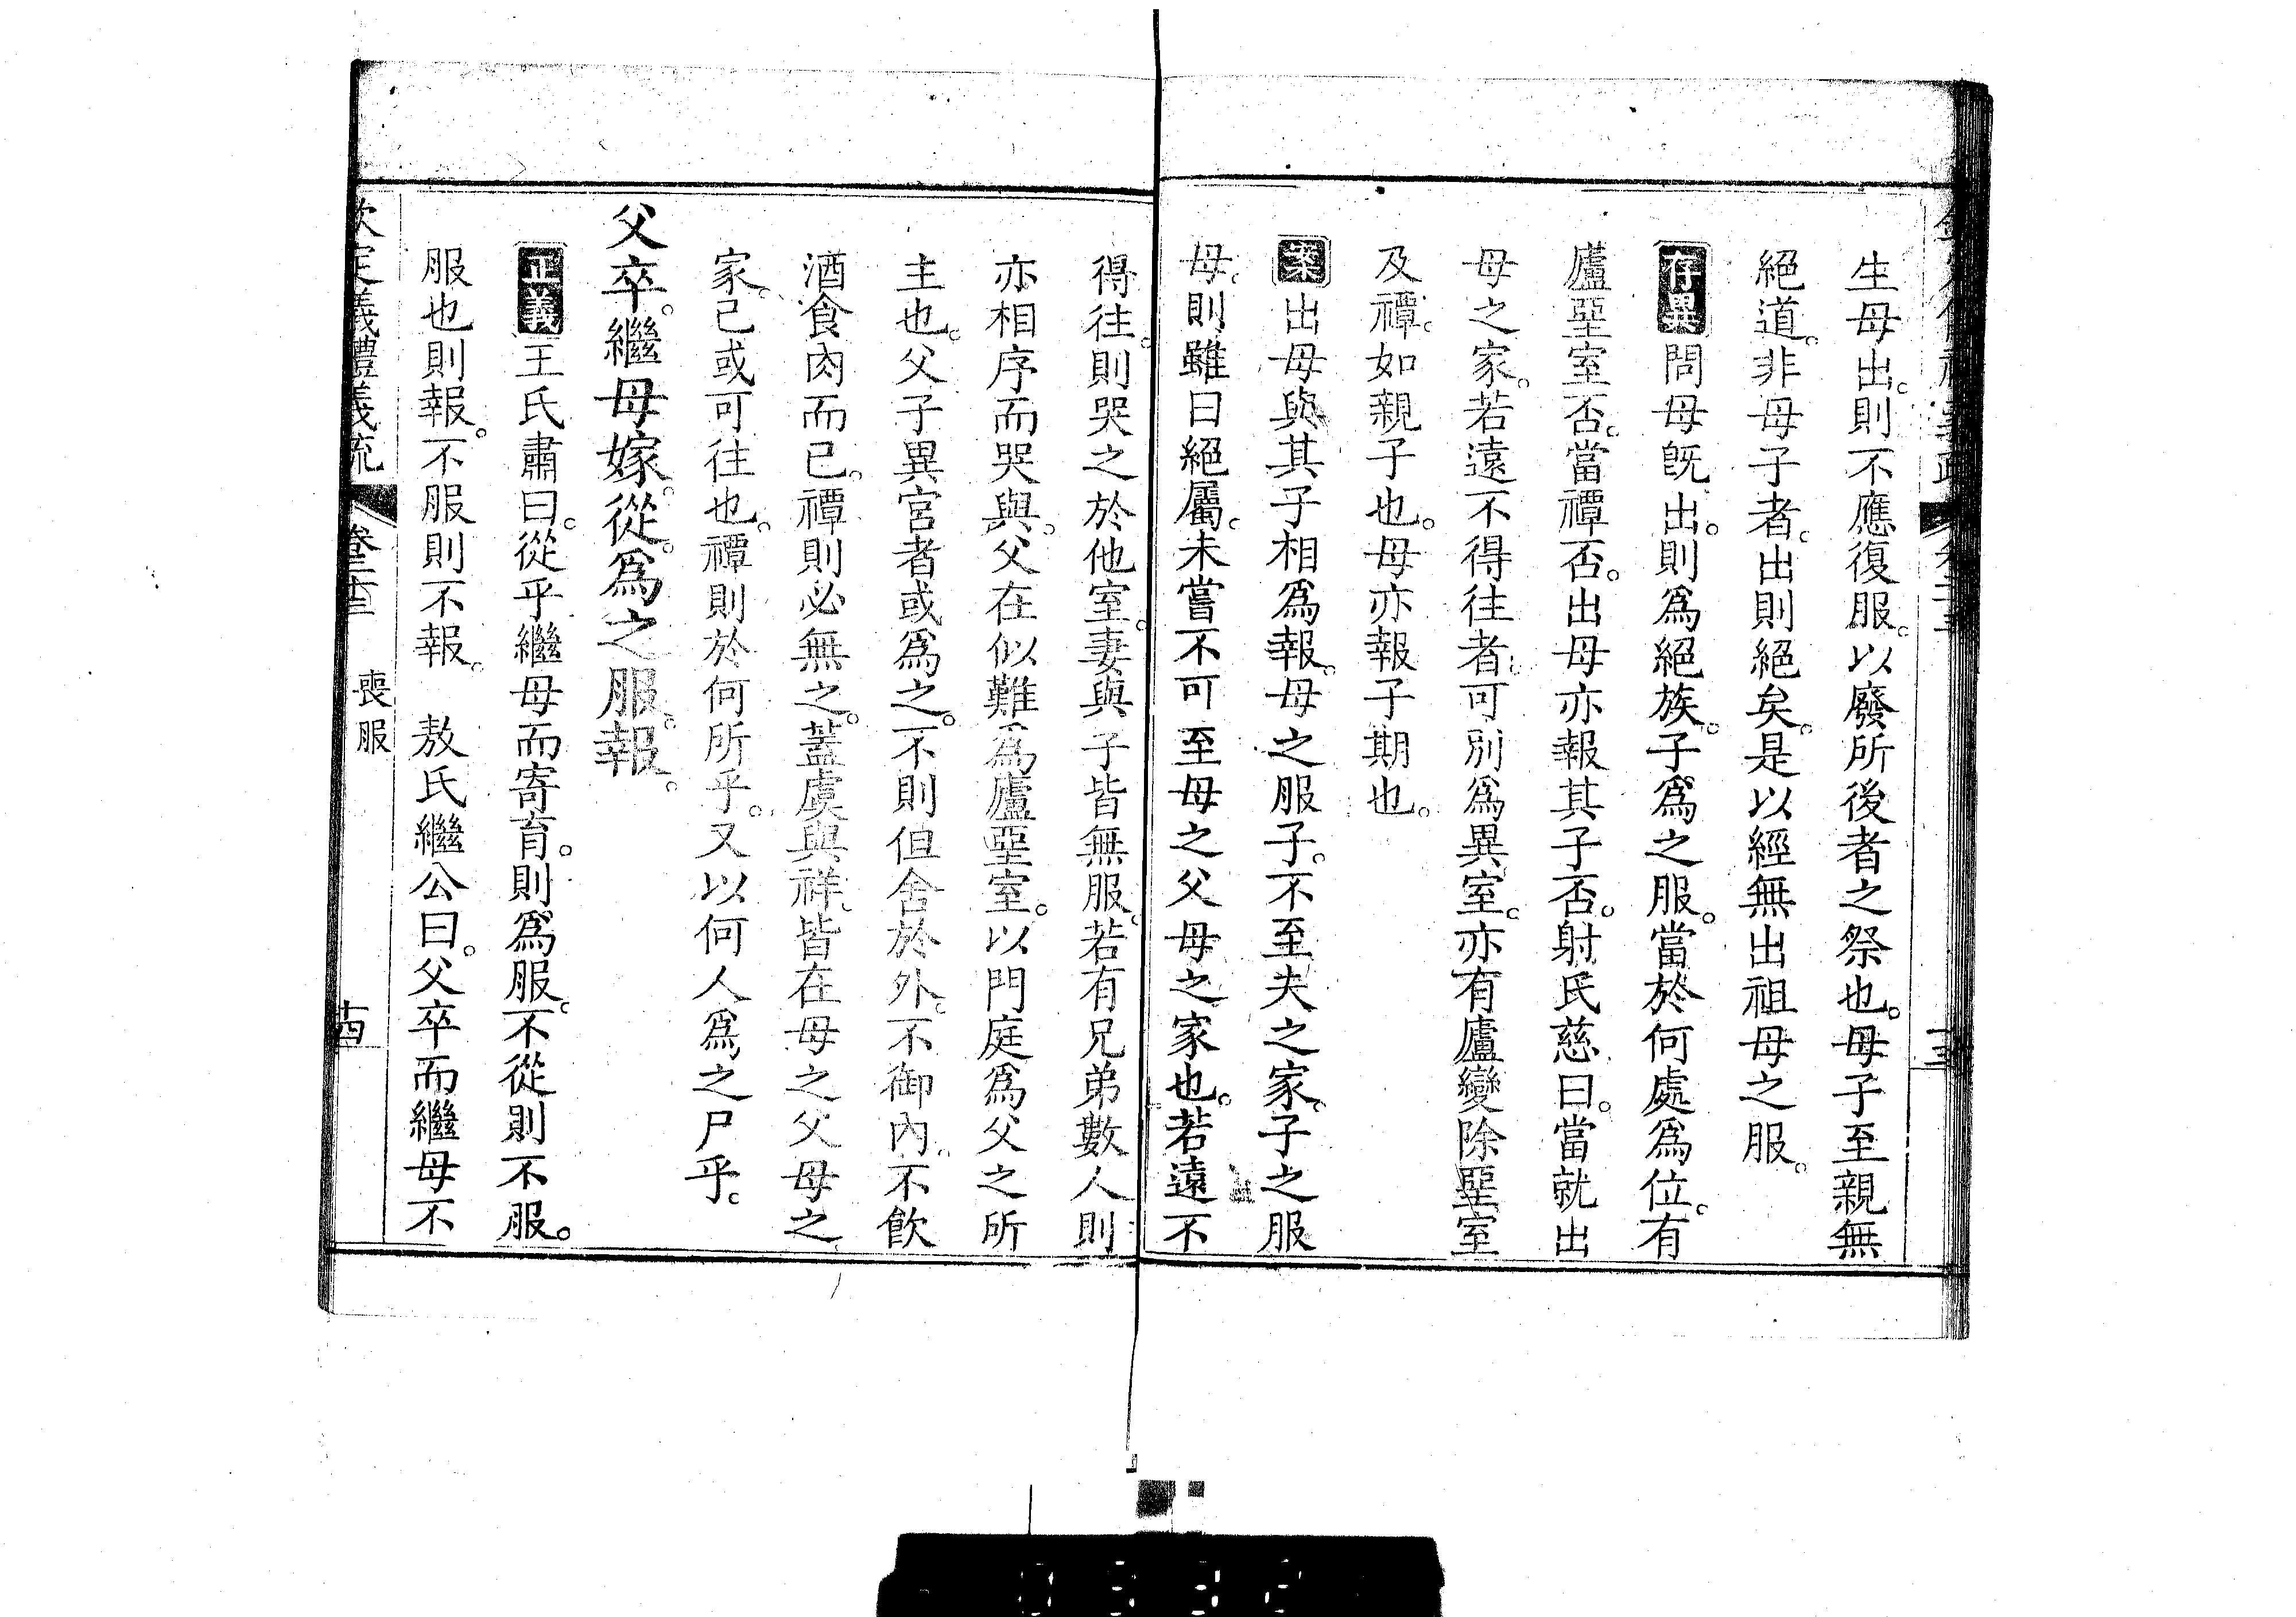 生母出。則不應復服。以廢所後者之祭也。母子至親無
絕道。非母子者。出則絕矣。是以經無出祖母之服。
存異 問母旣出。則爲絕族。子爲之服。當於何處爲位。有
廬堊室否。當禫否。出母亦報其子否。射氏慈曰。當就出
母之家。若遠不得往者。可別爲異室。亦有廬變除堊室
及禫。如親子也。母亦報子期也。
案 出母與其子相爲報。母之服子。不至夫之家。子之服
母。則雖曰絕屬。未嘗不可至母之父母之家也。若遠不
得往。則哭之於他室。妻與子皆無服。若有兄弟數人則
亦相序而哭與。父在似難爲廬堊室。以門庭爲父之所
主也。父子異宮者或爲之。不則但舍於外。不御內。不飮
酒食肉而已。禫則必無之。蓋虞與祥。皆在母之父母之
家。已或可往也。禫則於何所乎。又以何人爲之尸乎。
父卒。繼母嫁。從。爲之服。報。
正義 王氏肅曰。從乎繼母而寄育。則爲服。不從則不服。
服也則報。不服則不報。 敖氏繼公曰。父卒而繼母不
欽定儀禮義疏 卷二十三 喪服 十四